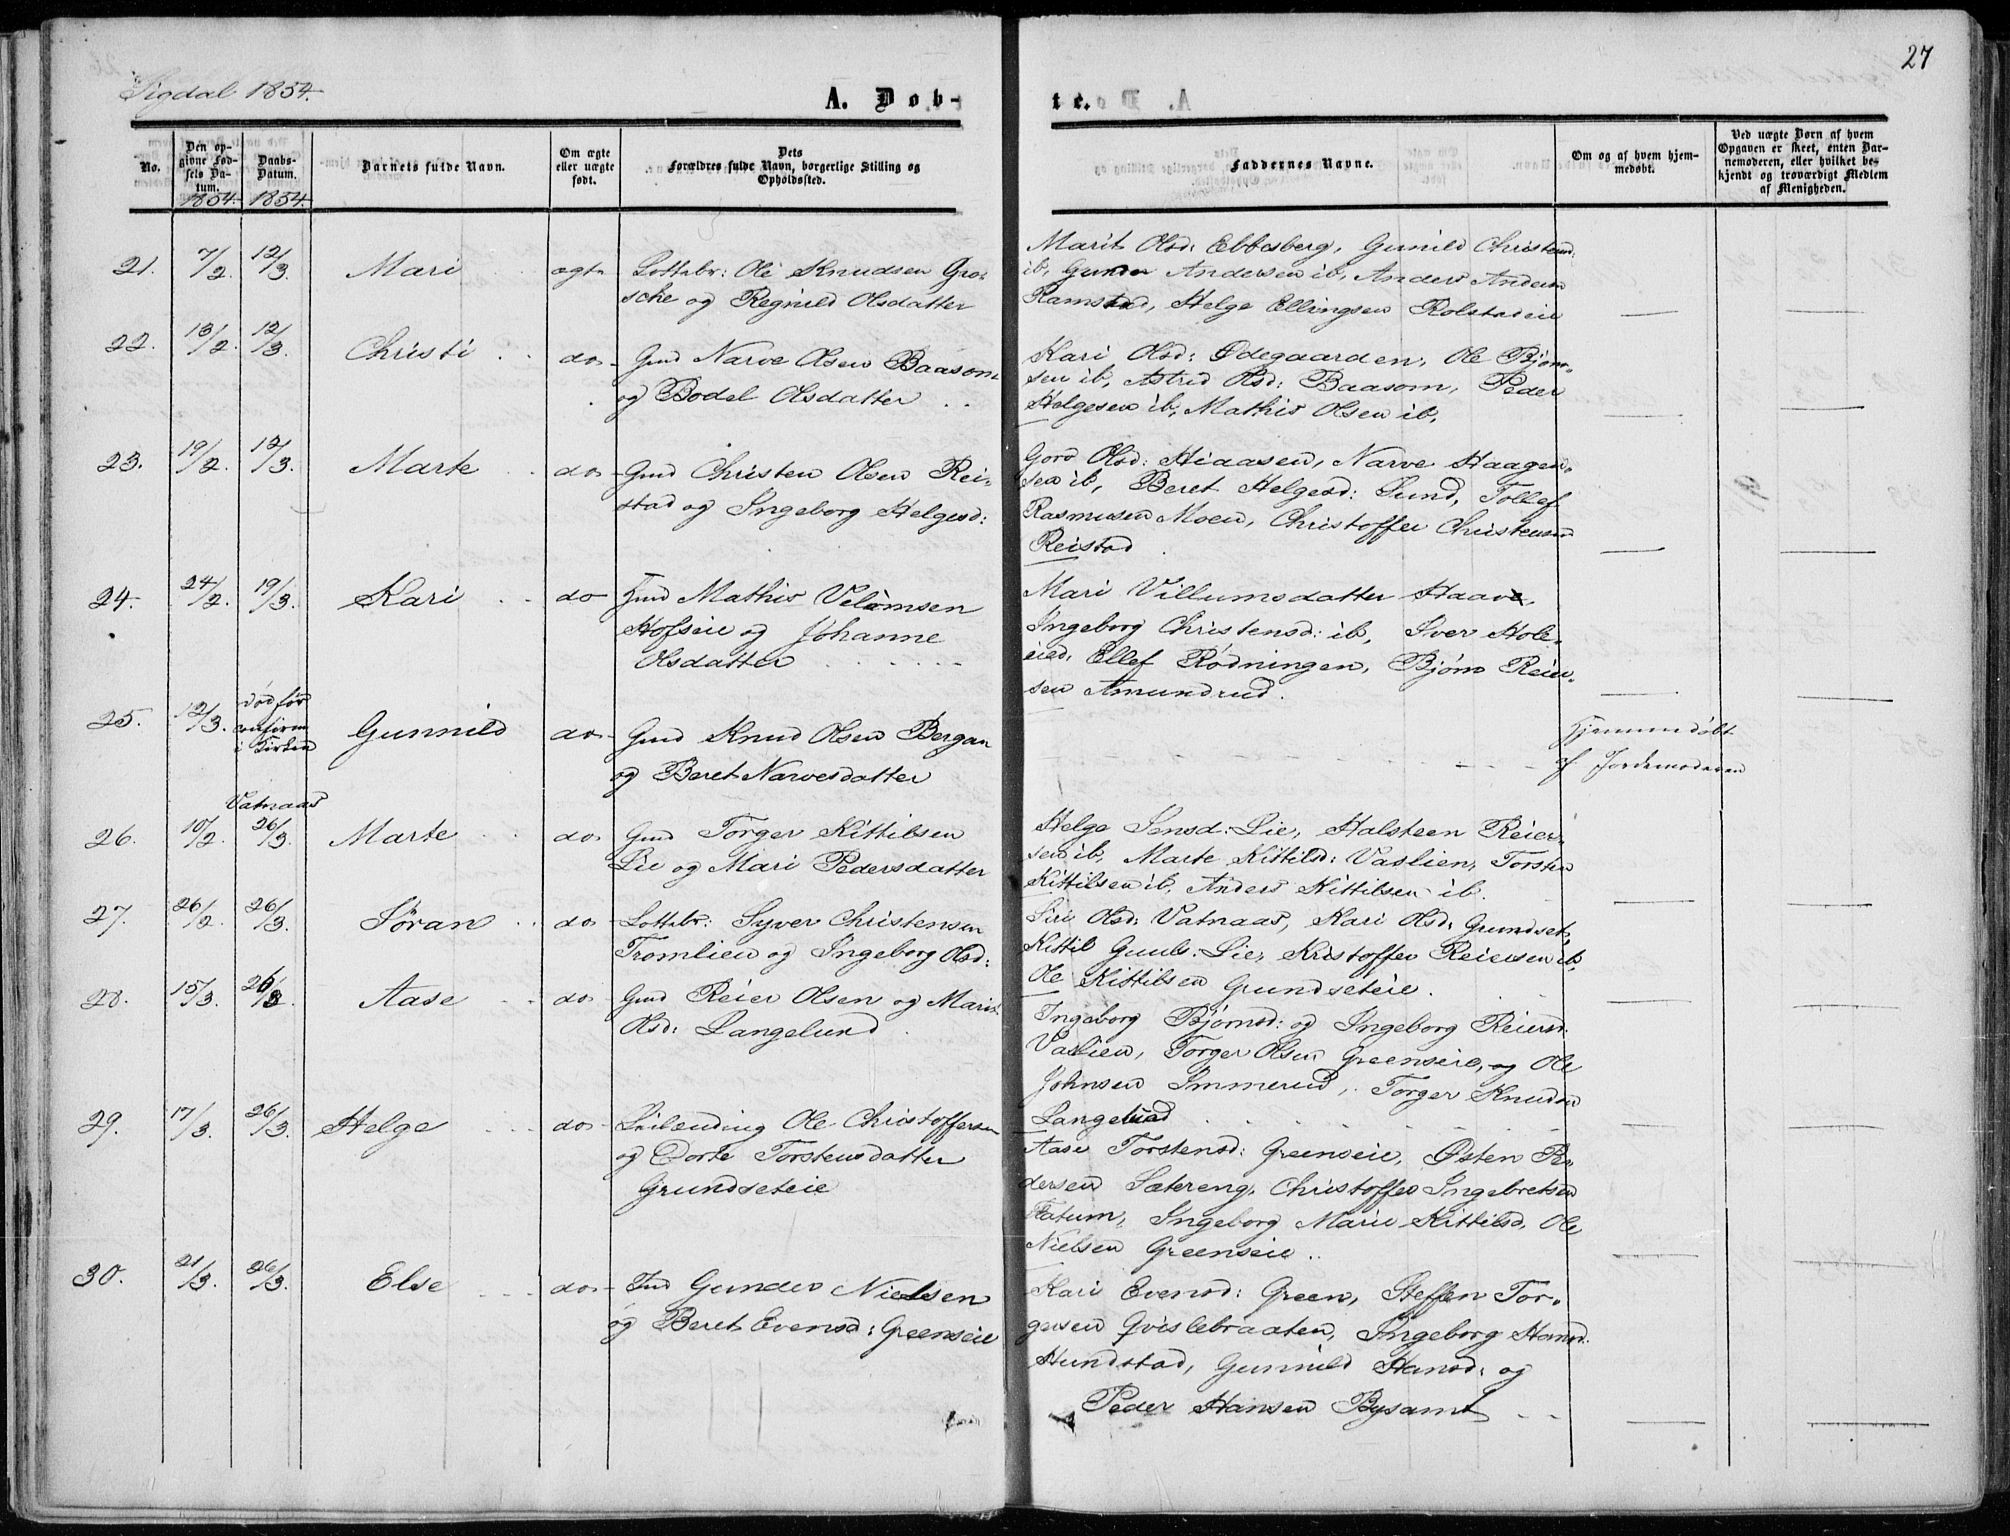 Sigdal 1854.
A. Døb-
te.
27
No.
Den opgivne Fødsels Datum.
Daabs-Datum.
Barnets fulde Navn.
Om ægte eller uægte født.
Dets Forældres fulde Navn, borgerlige Stilling og Opholdssted.
Faddernes Navne.
Om og af hvem hjemmedøbt.
Ved uægte Børn af hvem Opgaven er skeet, enten Barnemoderen, eller hvilket bekjendt og troværdigt Medlem af Menigheden.
1854. 1854.
21. 7/2. 12/3. Mari ægte Lottebr: Ole Knudsen Gro-
sche og Regnild Olsdatter
Marit Olsd: Ebbesberg, Gunild Christensd:
ib, Gunder Andersen ib, Anders Andersen
Ramstad, Helge Ellingsen Rolstadeie
22. 13/2. 12/3. Christi do Gmd Narve Olsen Baasom
og Bodel Olsdatter
Kari Olsd: Ødegaarden, Ole Bjørn-
sen ib, Astrid Olsd: Baasom, Peder
Helgesen ib, Mathis Olsen ib,
23. 19/2. 12/3. Marte do Gmd Christen Olsen Rei-
stad og Ingeborg Helgesd:
Goro Olsd: Hiaasen, Narve Haagen-
sen ib, Beret Helgesd: Lund, Tollef
Rasmusen Moen, Christoffer Christensen
Reistad
24. 24/2. 19/3. Kari do Hmd Mathis Velomsen
Hofseie og Johanne
Olsdatter
Mari Villumsdatter Haave,
Ingeborg Christensd: ib, Iver Hole-
eied, Ellef Rødningen, Bjørn Reier-
sen Amundrud.
25. 12/3. død før
i Kirken
Gunnild do Gmd Knud Olsen Bergan
og Beret Narvesdatter
Hjemmedøbt
af Jordemoderen
Vatnaas
26. 10/2. 26/3. Marte do Gmd Torger Kittilsen
Lie og Mari Pedersdatter
Helge Jensd: Lie, Halsteen Reier-
sen ib, Marte Kittilsd: Vaslien, Torsten
Kittilsen ib, Anders Kittilsen ib.
27. 26/2. 26/3. Søran do Lottebr: Syver Christensen
Tromlien og Ingeborg Olsd:
Siri Olsd: Vatnaas, Kari Olsd: Grundset,
Kittil Gulbs: Lie, Kristoffer Reiersen ib,
Ole Kittilsen Grundseteie.
28. 15/3. 26/3. Aase do Gmd Reier Olsen og Marit
Olsd: Langelund
Ingeborg Bjørnsd: og Ingeborg Reiersd:
Vaslien, Torger Olsen Greenseie, og Ole
Johnsen Immerud, Torger Knudsen
Langelund
29. 17/3. 26/3. Helge do Leilænding Ole Christoffersen
og Dorte Torstensdatter
Grundseteie
Aase Torstensd: Greenseie, Østen Pe-
dersen Sætereng, Christoffer Ingebretsen
Flatum, Ingeborg Marie Kittilsd, Ole
Nielsen Greenseie.
30. 21/3. 26/3. Else do Ind Gunder Nielsen
og Beret Evensd: Greenseie
Kari Evensd: Green, Steffen Tor-
gersen Qvislebraaten, Ingeborg Hansd:
Hundstad, Gunnild Hansd: og
Peder Hansen Bysamt